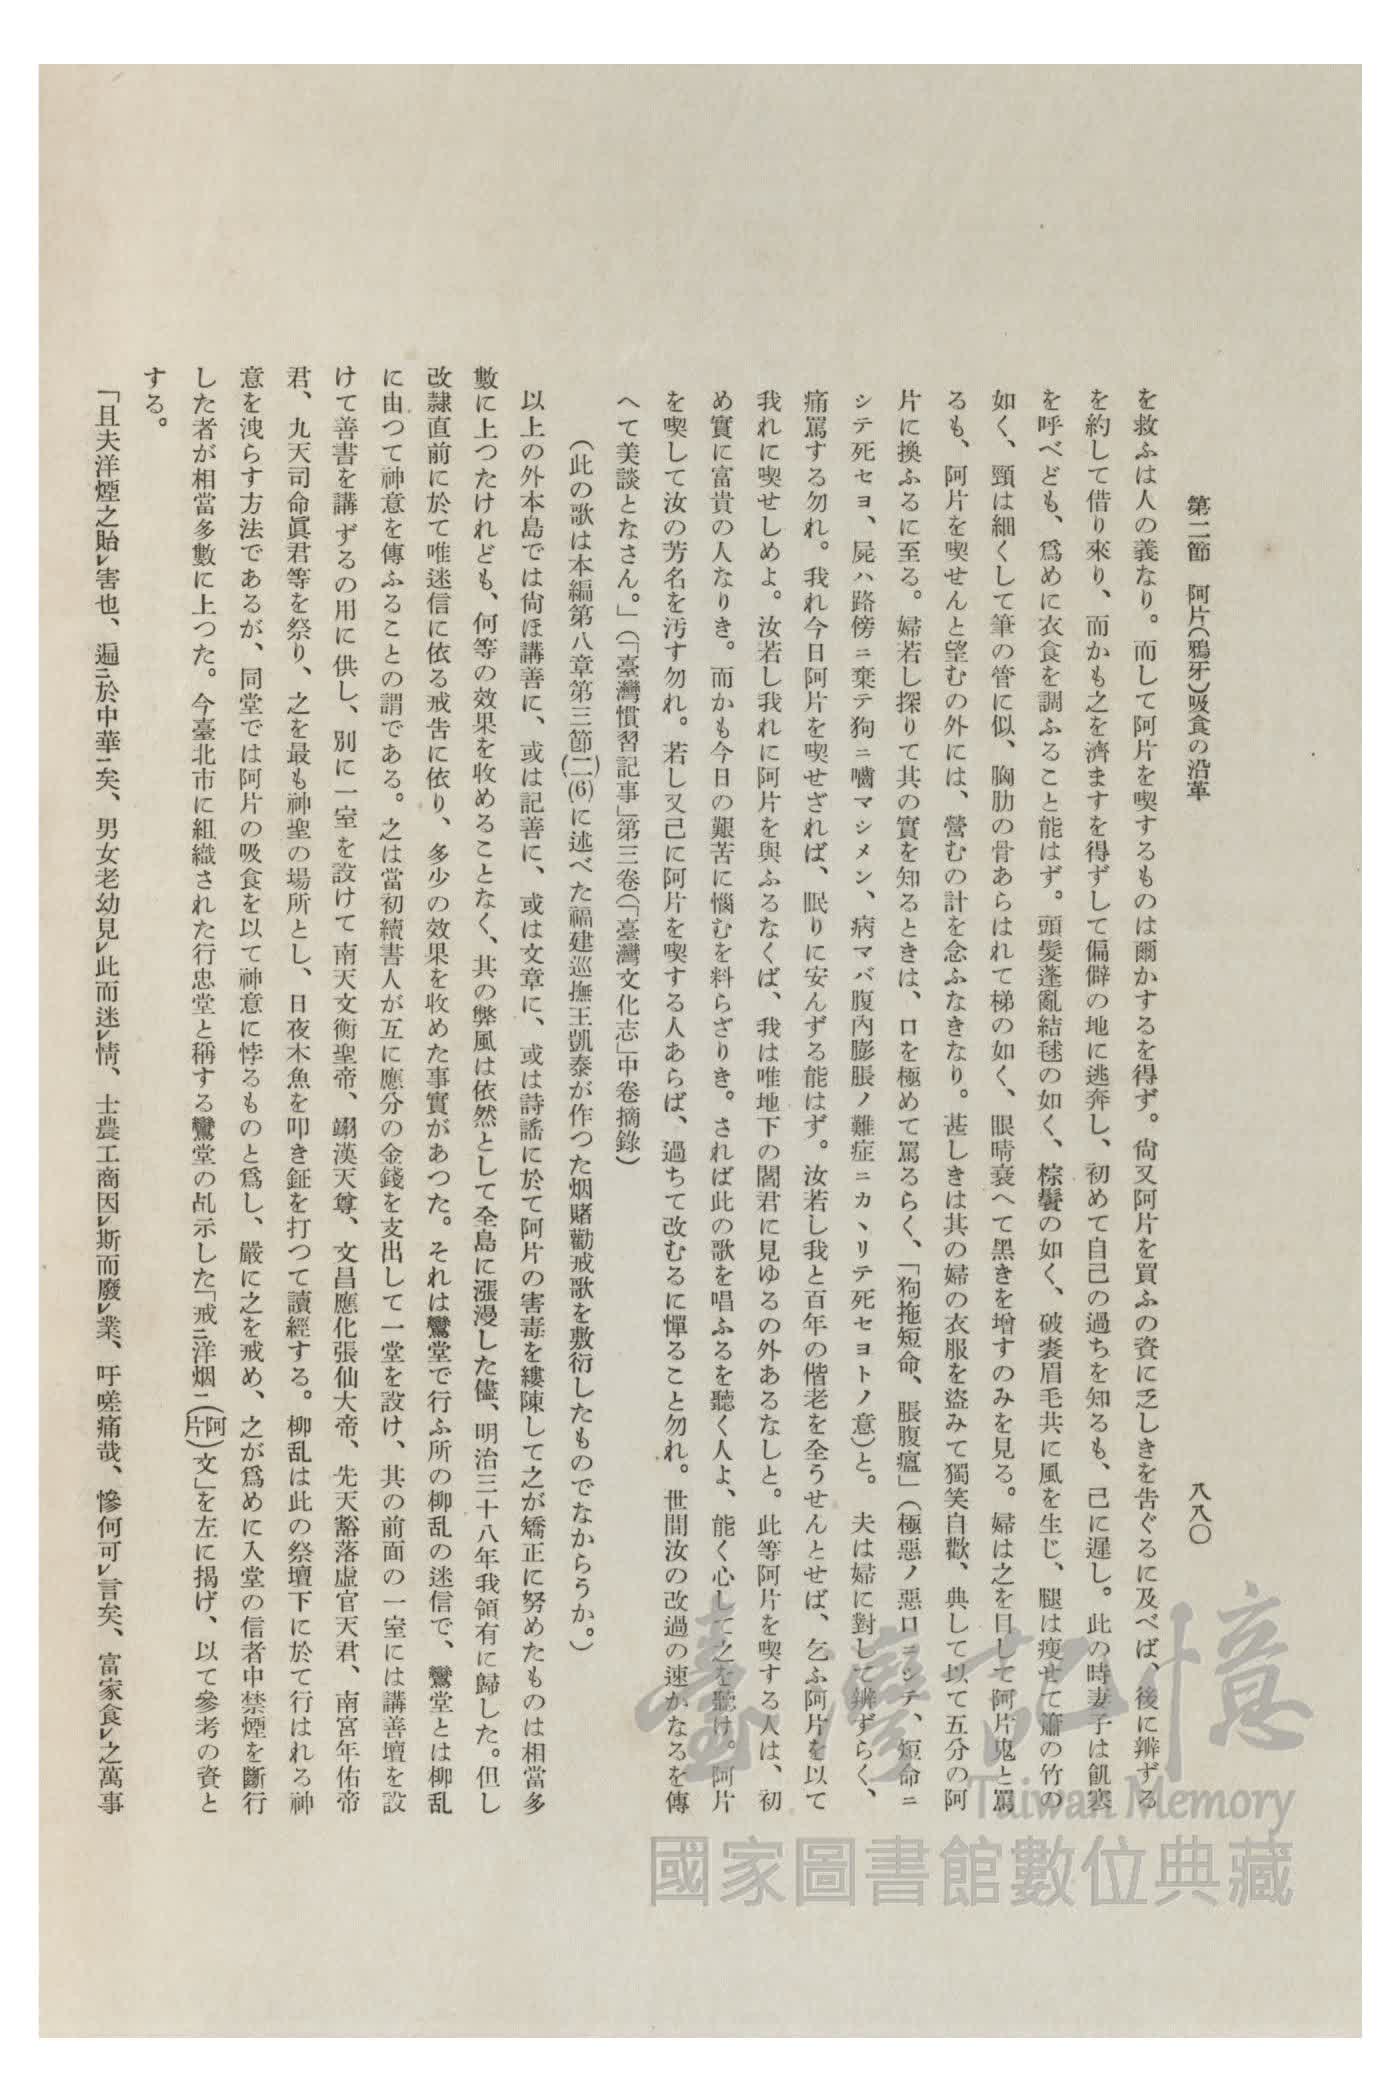 第二節　阿片(鴉牙)吸食の沿革
八八〇
を救ふは人の義なり。而して阿片を喫するものは爾かするを得ず。尙又阿片を買ふの資に乏しきを吿ぐるに及べば、後に辨ずる
を約して借り來り、而かも之を濟ますを得ずして偏僻の地に逃奔し、初めて自己の過ちを知るも、己に遲し。此の時妻子は飢寒
を呼べども、爲めに衣食を調ふること能はず。頭髮蓬亂結毬の如く、棕鬢の如く、破裘眉毛共に風を生じ、腿は瘦せて簫の竹の
如く、頸は細くして筆の管に似、胸肋の骨あらはれて梯の如く、眼晴衰へて黑きを增すのみを見る。婦は之を目して阿片鬼と罵
るも、阿片を喫せんと望むの外には、營むの計を念ふなきなり。甚しきは其の婦の衣服を盜みて獨笑自歡、典して以て五分の阿
片に換ふるに至る。婦若し探りて其の實を知るときは、口を極めて罵るらく、「狗拖短命、脹腹瘟」(極惡ノ惡口ニシテ、短命ニ
シテ死セヨ、屍ハ路傍ニ棄テ狗ニ嚙マシメン、病マバ腹內膨脹ノ難症ニカヽリテ死セヨトノ意)と。　夫は婦に對して辨ずらく、
痛罵する勿れ。我れ今日阿片を喫せざれば、眠りに安んずる能はず。汝若し我と百年の偕老を全うせんとせば、乞ふ阿片を以て
我れに喫せしめよ。汝若し我れに阿片を與ふるなくば、我は唯地下の閻君に見ゆるの外あるなしと。此等阿片を喫する人は、初
め實に富貴の人なりき。而かも今日の艱苦に惱むを料らざりき。されば此の歌を唱ふるを聽く人よ、能く心して之を聽け。阿片
を喫して汝の芳名を汚す勿れ。若し又己に阿片を喫する人あらば、過ちて改むるに憚ること勿れ。世間汝の改過の速かなるを傳
へて美談となさん。」(「臺灣慣習記事」第三卷(「臺灣文化志」中卷摘錄)
(此の歌は本編第八章第三節(二)(6)に述べた福建巡撫王凱泰が作つた烟賭勸戒歌を敷衍したものでなからうか。)
以上の外本島では尙ほ講善に、或は記善に、或は文章に、或は詩謠に於て阿片の害毒を縷陳して之が矯正に努めたものは相當多
數に上つたけれども、何等の效果を收めることなく、其の弊風は依然として全島に漲漫した儘、明治三十八年我領有に歸した。但し
改隷直前に於て唯迷信に依る戒吿に依り、多少の效果を收めた事實があつた。それは鸞堂で行ふ所の柳乩の迷信で、鸞堂とは柳乩
に由つて神意を傳ふることの謂である。之は當初續書人が互に應分の金錢を支出して一堂を設け、其の前面の一室には講善壇を設
けて善書を講ずるの用に供し、別に一室を設けて南天文衡聖帝、翊漢天尊、文昌應化張仙大帝、先天豁落虛官天君、南宮年佑帝
君、九天司命眞君等を祭り、之を最も神聖の場所とし、日夜木魚を叩き鉦を打つて讀經する。柳乩は此の祭壇下に於て行はれる神
意を洩らす方法であるが、同堂では阿片の吸食を以て神意に悖るものと爲し、嚴に之を戒め、之が爲めに入堂の信者中禁煙を斷行
した者が相當多數に上つた。今臺北市に組織された行忠堂と稱する鸞堂の乩示した「戒ニ洋烟ニ(阿片)文」を左に揭げ、以て參考の資と
する。
「且夫洋煙之貽レ害也、遍ニ於中華ニ矣、男女老幼見レ此而迷レ情、士農工商因レ斯而廢レ業、吁嗟痛哉、慘何可レ言矣、富家食レ之萬事
臺灣記憶
Taiwan Memory
國家圖書館數位典藏